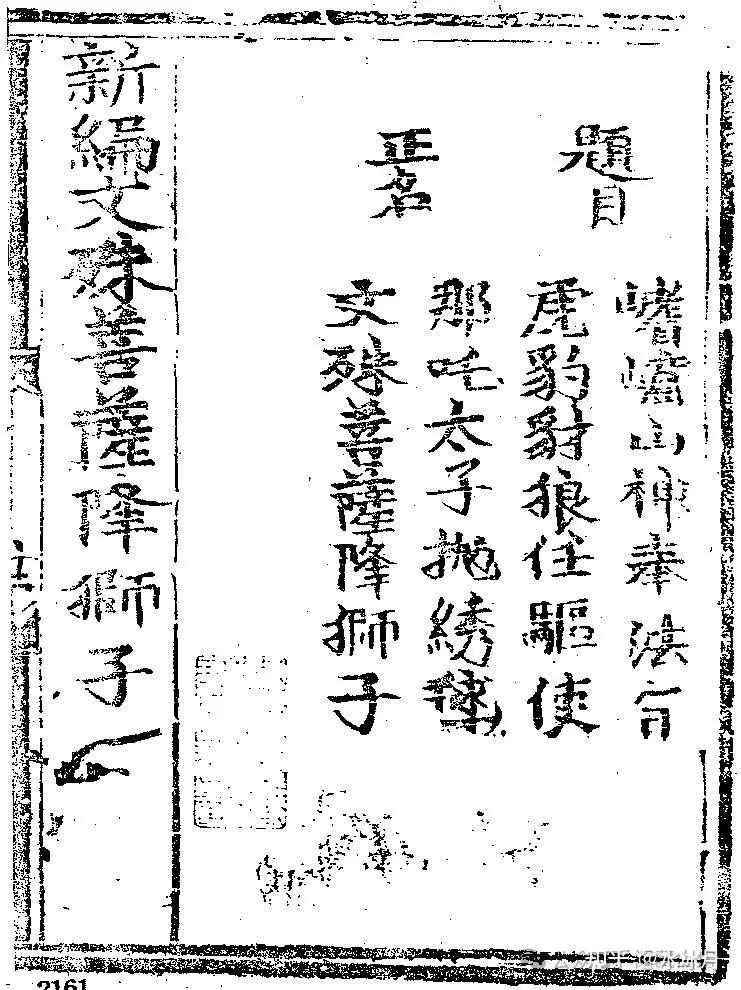 題目
山神奉法旨
虎豹豺狼任驅使
正名
那吒太子拋綉毬
文殊菩薩降獅子
新編文殊菩薩降獅子
2161
知乎